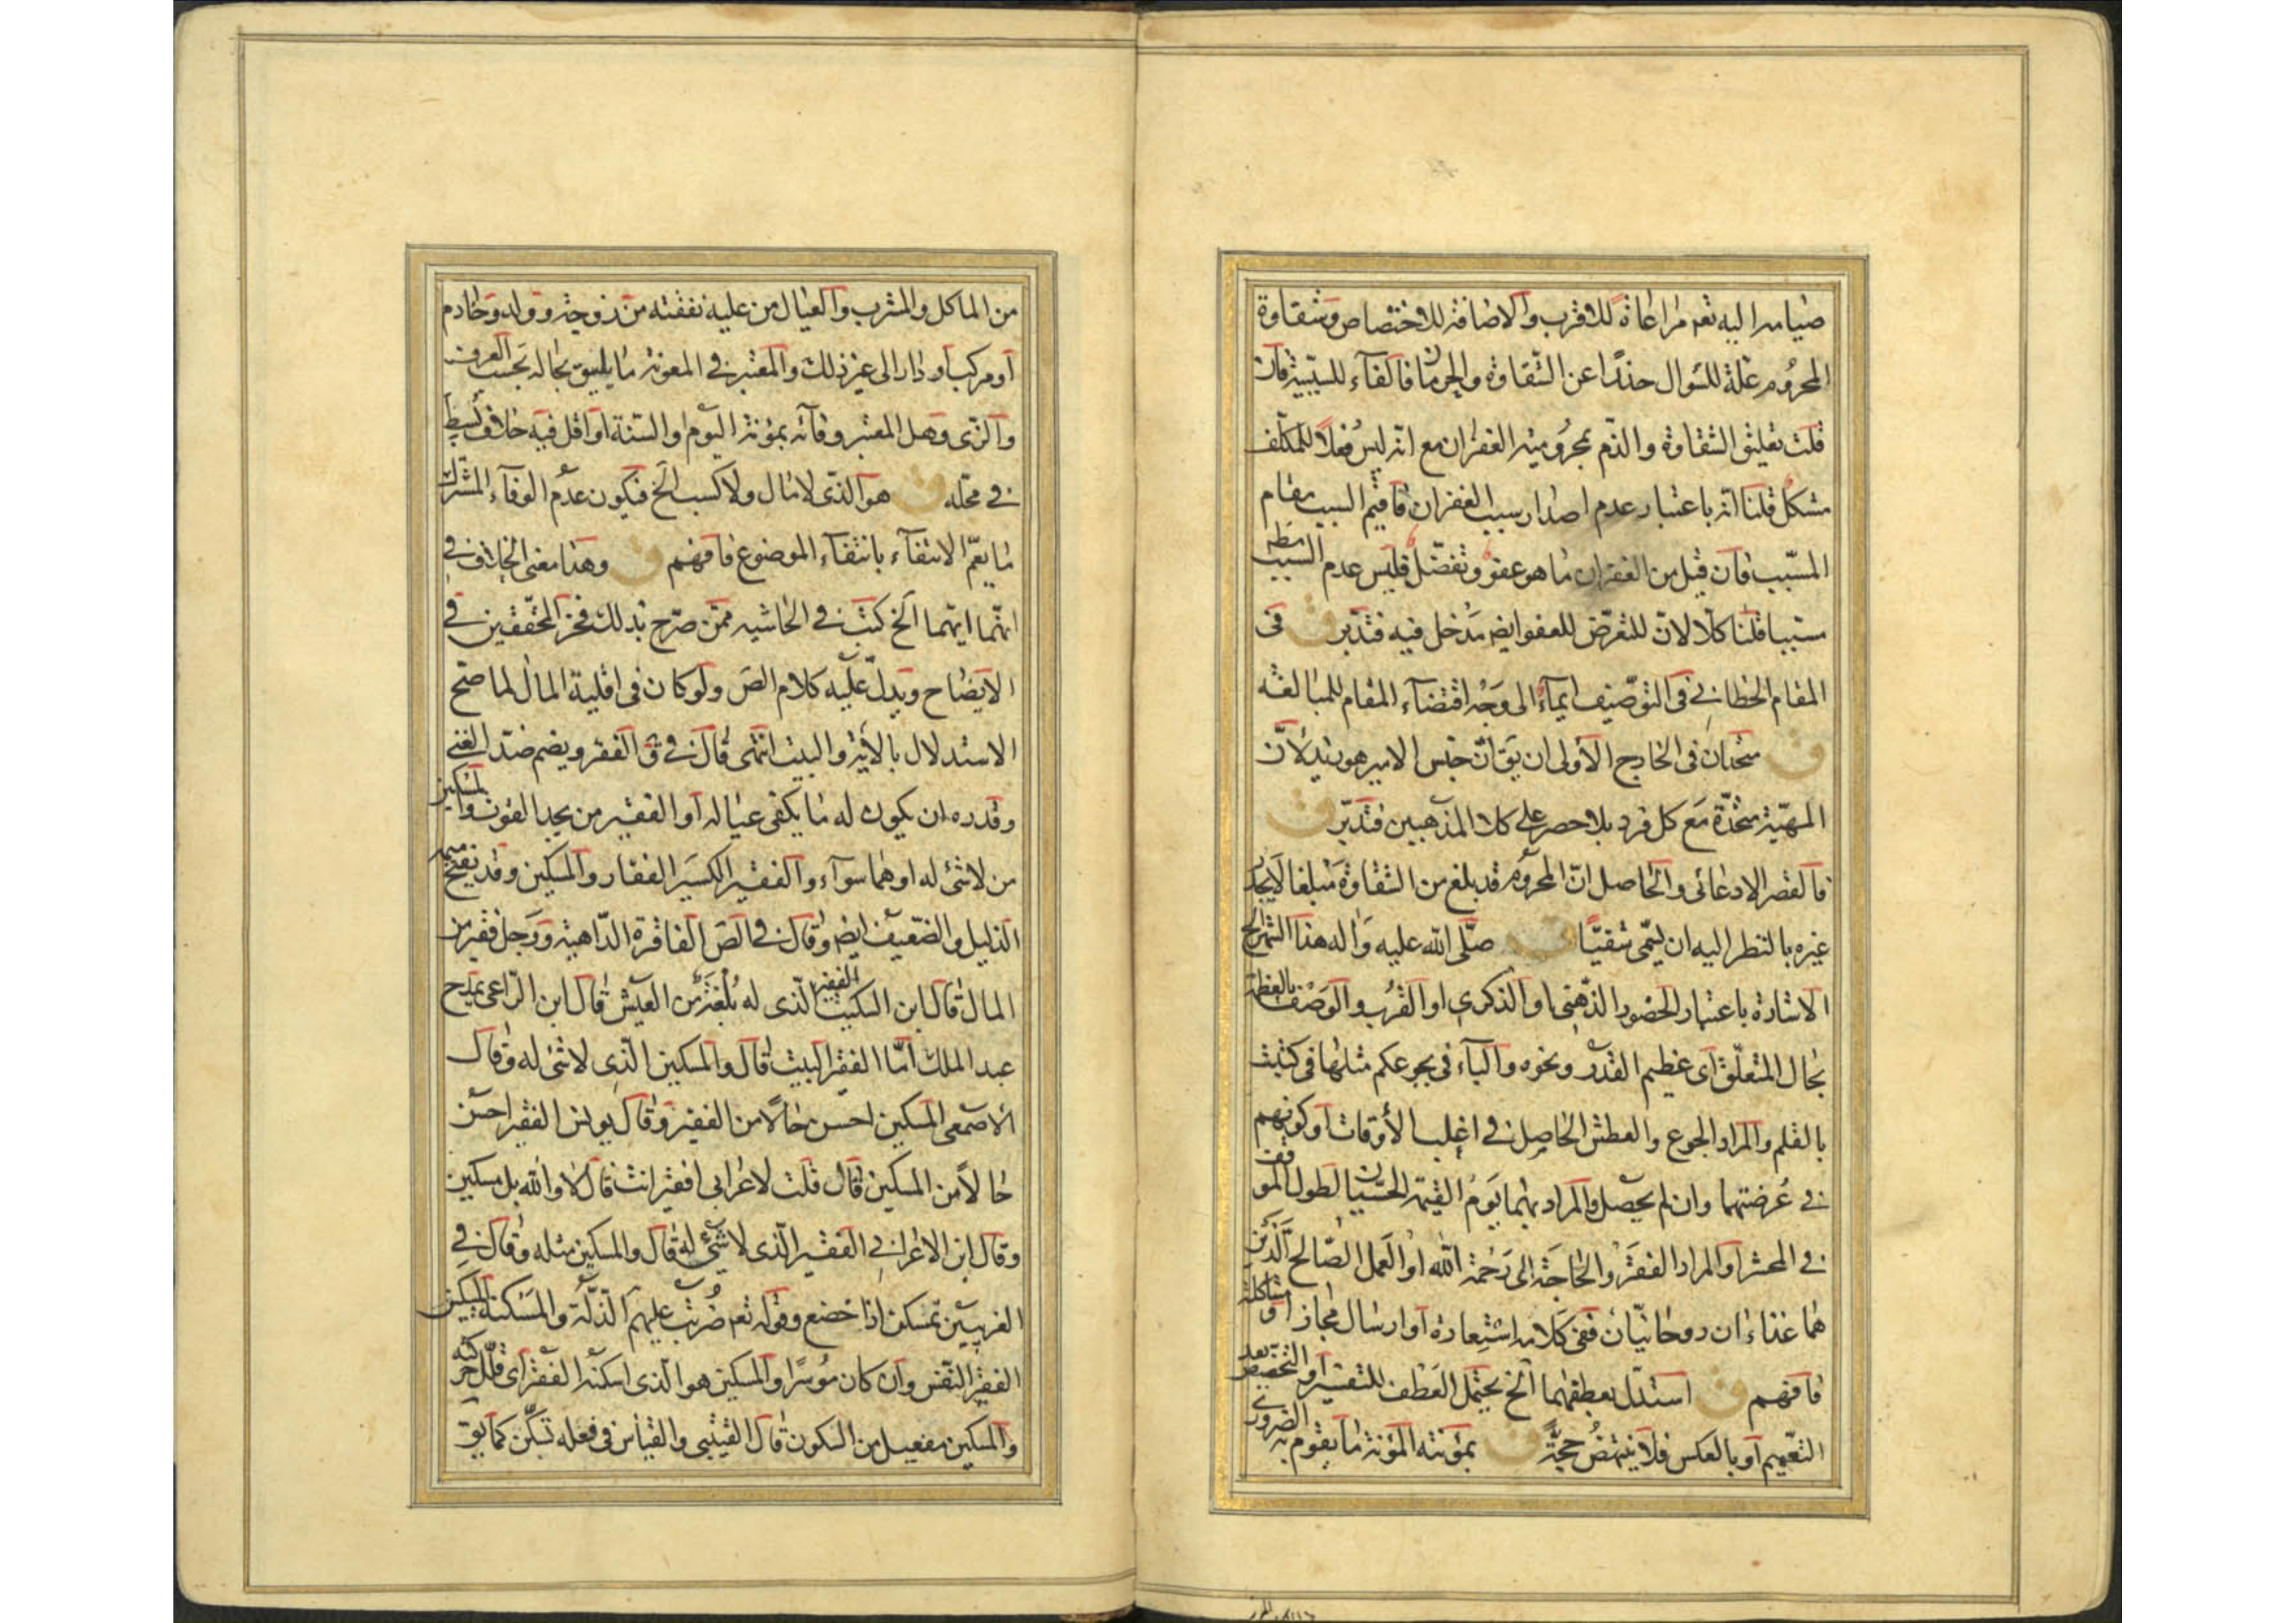 صيامه اليه تعم مراعاة للاقرب والاضافة للاختصاص وشقاوة
المحروم علة للسوال حذرا عن الشقاوة والحرمان فالفاء للسببية فان
قلت تعليق الشقاوة والذم بمحرومية الغفران مع انه ليس فعلا للمكلف
مشكل قلنا انه باعتبار عدم اصدار سبب الغفران فاقيم السبب مقام
المسبب فان قيل من الغفران ما هو عفو وتفضل فليس عدم السبب مطه
سببا قلنا كلا لان للتعرض للعفو ايضه مدخل فيه فتدبر ق فى
المقام الخطابي فى التوصيف ايماء الى وجه اقتضاء المقام للمبالغة
ق متحدان فى الخارج الأولى ان يق ان جنس الامير هو زيد لان
المهية متحدة مع كل فرد بلا حصر على كلا المذهبين فتدبر ق
فالقصر الادعائى والحاصل ان المحروم قد بلغ من الشقاوة مبلغا لايجدر
غيره بالنظر اليه ان يسمى شقيا ق صلى الله عليه واله هذا الشهر الخ
الاشارة باعتبار الحضور الذهنى او الذكرى او القرب والوصف بالعظمة
بحال المتعلق اى عظيم القدر ونحوه والباء فى بجوعكم مثلها فى كتبت
بالقلم والمراد الجوع والعطش الحاصل فى اغلب الأوقات او كونهم
فى عرضتهما وان لم يحصل والمراد بهما يوم القيمة الحسيان لطول الموقف
فى المحشر او المراد الفقر والحاجة الى رحمة الله او العمل الصالح الذين
هما غذاءان روحانيان ففى كلامه استعارة او ارسال مجاز او مشاكلة
فافهم ق استدل بعطفهما الخ يحتمل العطف للتفسير او التخصيص بعد
التعميم او بالعكس فلا ينتهض حجة ق بمؤنته المؤنة ما يقوم به الضرورى
من الماكل والمشرب والعيال من عليه نفقته من زوجة وولد وخادم
او مركب او دار الى غير ذلك والمعتبر فى المعونة ما يليق بحاله بحسب العرف
والزى وهل المعتبر وفائه بمؤنة اليوم او السنة او اقل فيه خلاف بسيط
فى محله ق هو الذى لا مال ولا كسب الخ فيكون عدم الوفاء المشترك
ما يعم الانتفاء بانتفاء الموضوع فافهم ق وهذا معنى الخلاف فى
انهما ايهما الخ كتب فى الحاشيه ممن صرح بذلك فخر المحققين فى
الايضاح ويدل عليه كلام الصَ ولو كان فى اقلية المال لما صح
الاستدلال بالأية والبيت انتهى قال فى ق الفقر ويضم ضد الغنى
وقدره ان يكون له ما يكفى عياله او الفقير من يجد القوت والمسكين
من لا شئ له او هما سواء والفقير الكسير الفقار والمسكين وقد يفتح ميمه
الذليل والضعيف ايضه وقال فى الصَ الفاقرة الداهية ورجل فقير من
المال قال ابن السكيت الفقير الذى له بلغة من العيش قال ابن الراعى يمدح
عبد الملك اما الفقير البيت قال والمسكين الذى لا شئ له وقال
الاصمعى المسكين احسن حالا من الفقير وقال يونس الفقير احسن
حالا من المسكين قال قلت لاعرابى افقير انت قال لا والله بل مسكين
وقال ابن الاعرابى الفقير الذى لا شئ له قال والمسكين مثله وقال فى
الغريبين تمسكن اذا خضع وقوله تعم ضربت عليهم الذلة والمسكنة المسكين
الفقير النفس وان كان موسرا والمسكين هو الذى اسكنه الفقر اى قلل حركته
والمسكين مفعيل من السكون قال القتيبى والقياس فى فعله تسكن كما يق